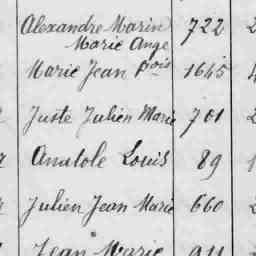 Alexandre Marin 722 2
Marie Ange
Marie Jean Fois 1645
Juste Julien Marie 701 2
Anatole Louis 89 1
Julien Jean Marie 660 2
Jean Marie